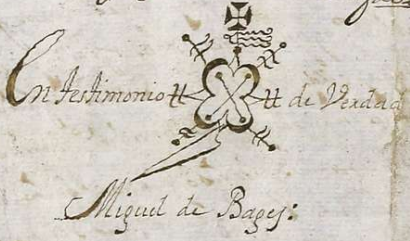 En testimonio de Verdad
Miguel de Bages: